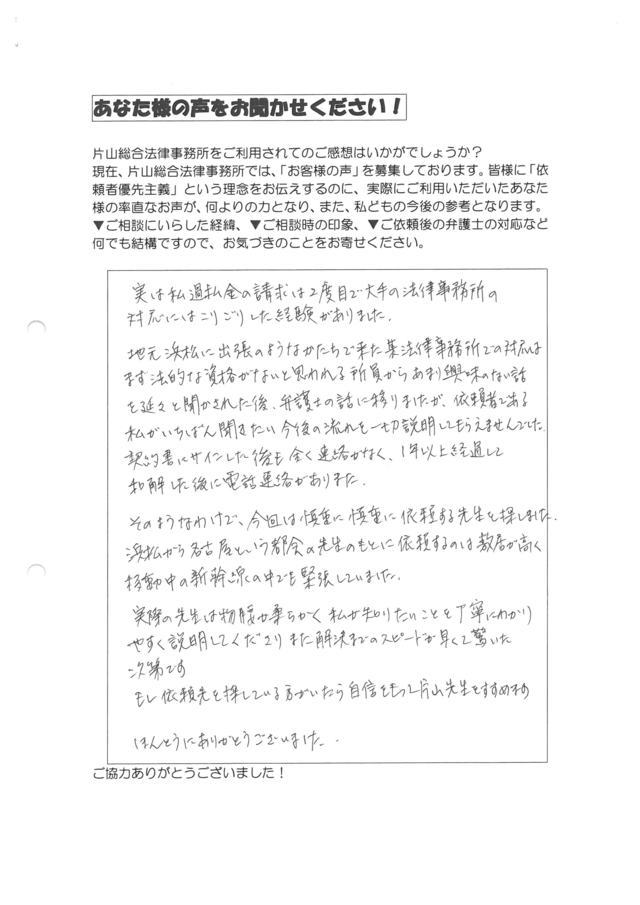 あなた様の声をお聞かせください！
片山総合法律事務所をご利用されてのご感想はいかがでしょうか？
現在、片山総合法律事務所では、「お客様の声」を募集しております。皆様に「依
頼者優先主義」という理念をお伝えするのに、実際にご利用いただいたあなた
様の率直なお声が、何よりの力となり、また、私どもの今後の参考となります。
▼ご相談にいらした経緯、▼ご相談時の印象、▼ご依頼後の弁護士の対応など
何でも結構ですので、お気づきのことをお寄せください。
実は私過払金の請求は2度目で大手の法律事務所の
対応にはこりごりした経験がありました.
地元浜松に出張のようなかたちで来た某法律事務所での対応は
まず法的な資格がないと思われる所員からあまり興味のない話
を延々と聞かされた後、弁護士の話に移りましたが、依頼者である
私がいちばん聞きたい今後の流れを一切説明してもらえませんでした.
契約書にサインした後も全く連絡がなく、1年以上経過して
和解した後に電話連絡がありました.
そのようなわけで、今回は慎重に慎重に依頼する先生を探しました.
浜松から名古屋という都会の先生のもとに依頼するのは敷居が高く
移動中の新幹線の中でも緊張していました.
実際の先生は物腰が柔らかく私が知りたいことを丁寧にわかり
やすく説明してくださりまた解決までのスピードが早くて驚いた
次第です
もし依頼先を探している方がいたら自信をもって片山先生をすすめます
ほんとうにありがとうございました.
ご協力ありがとうございました！